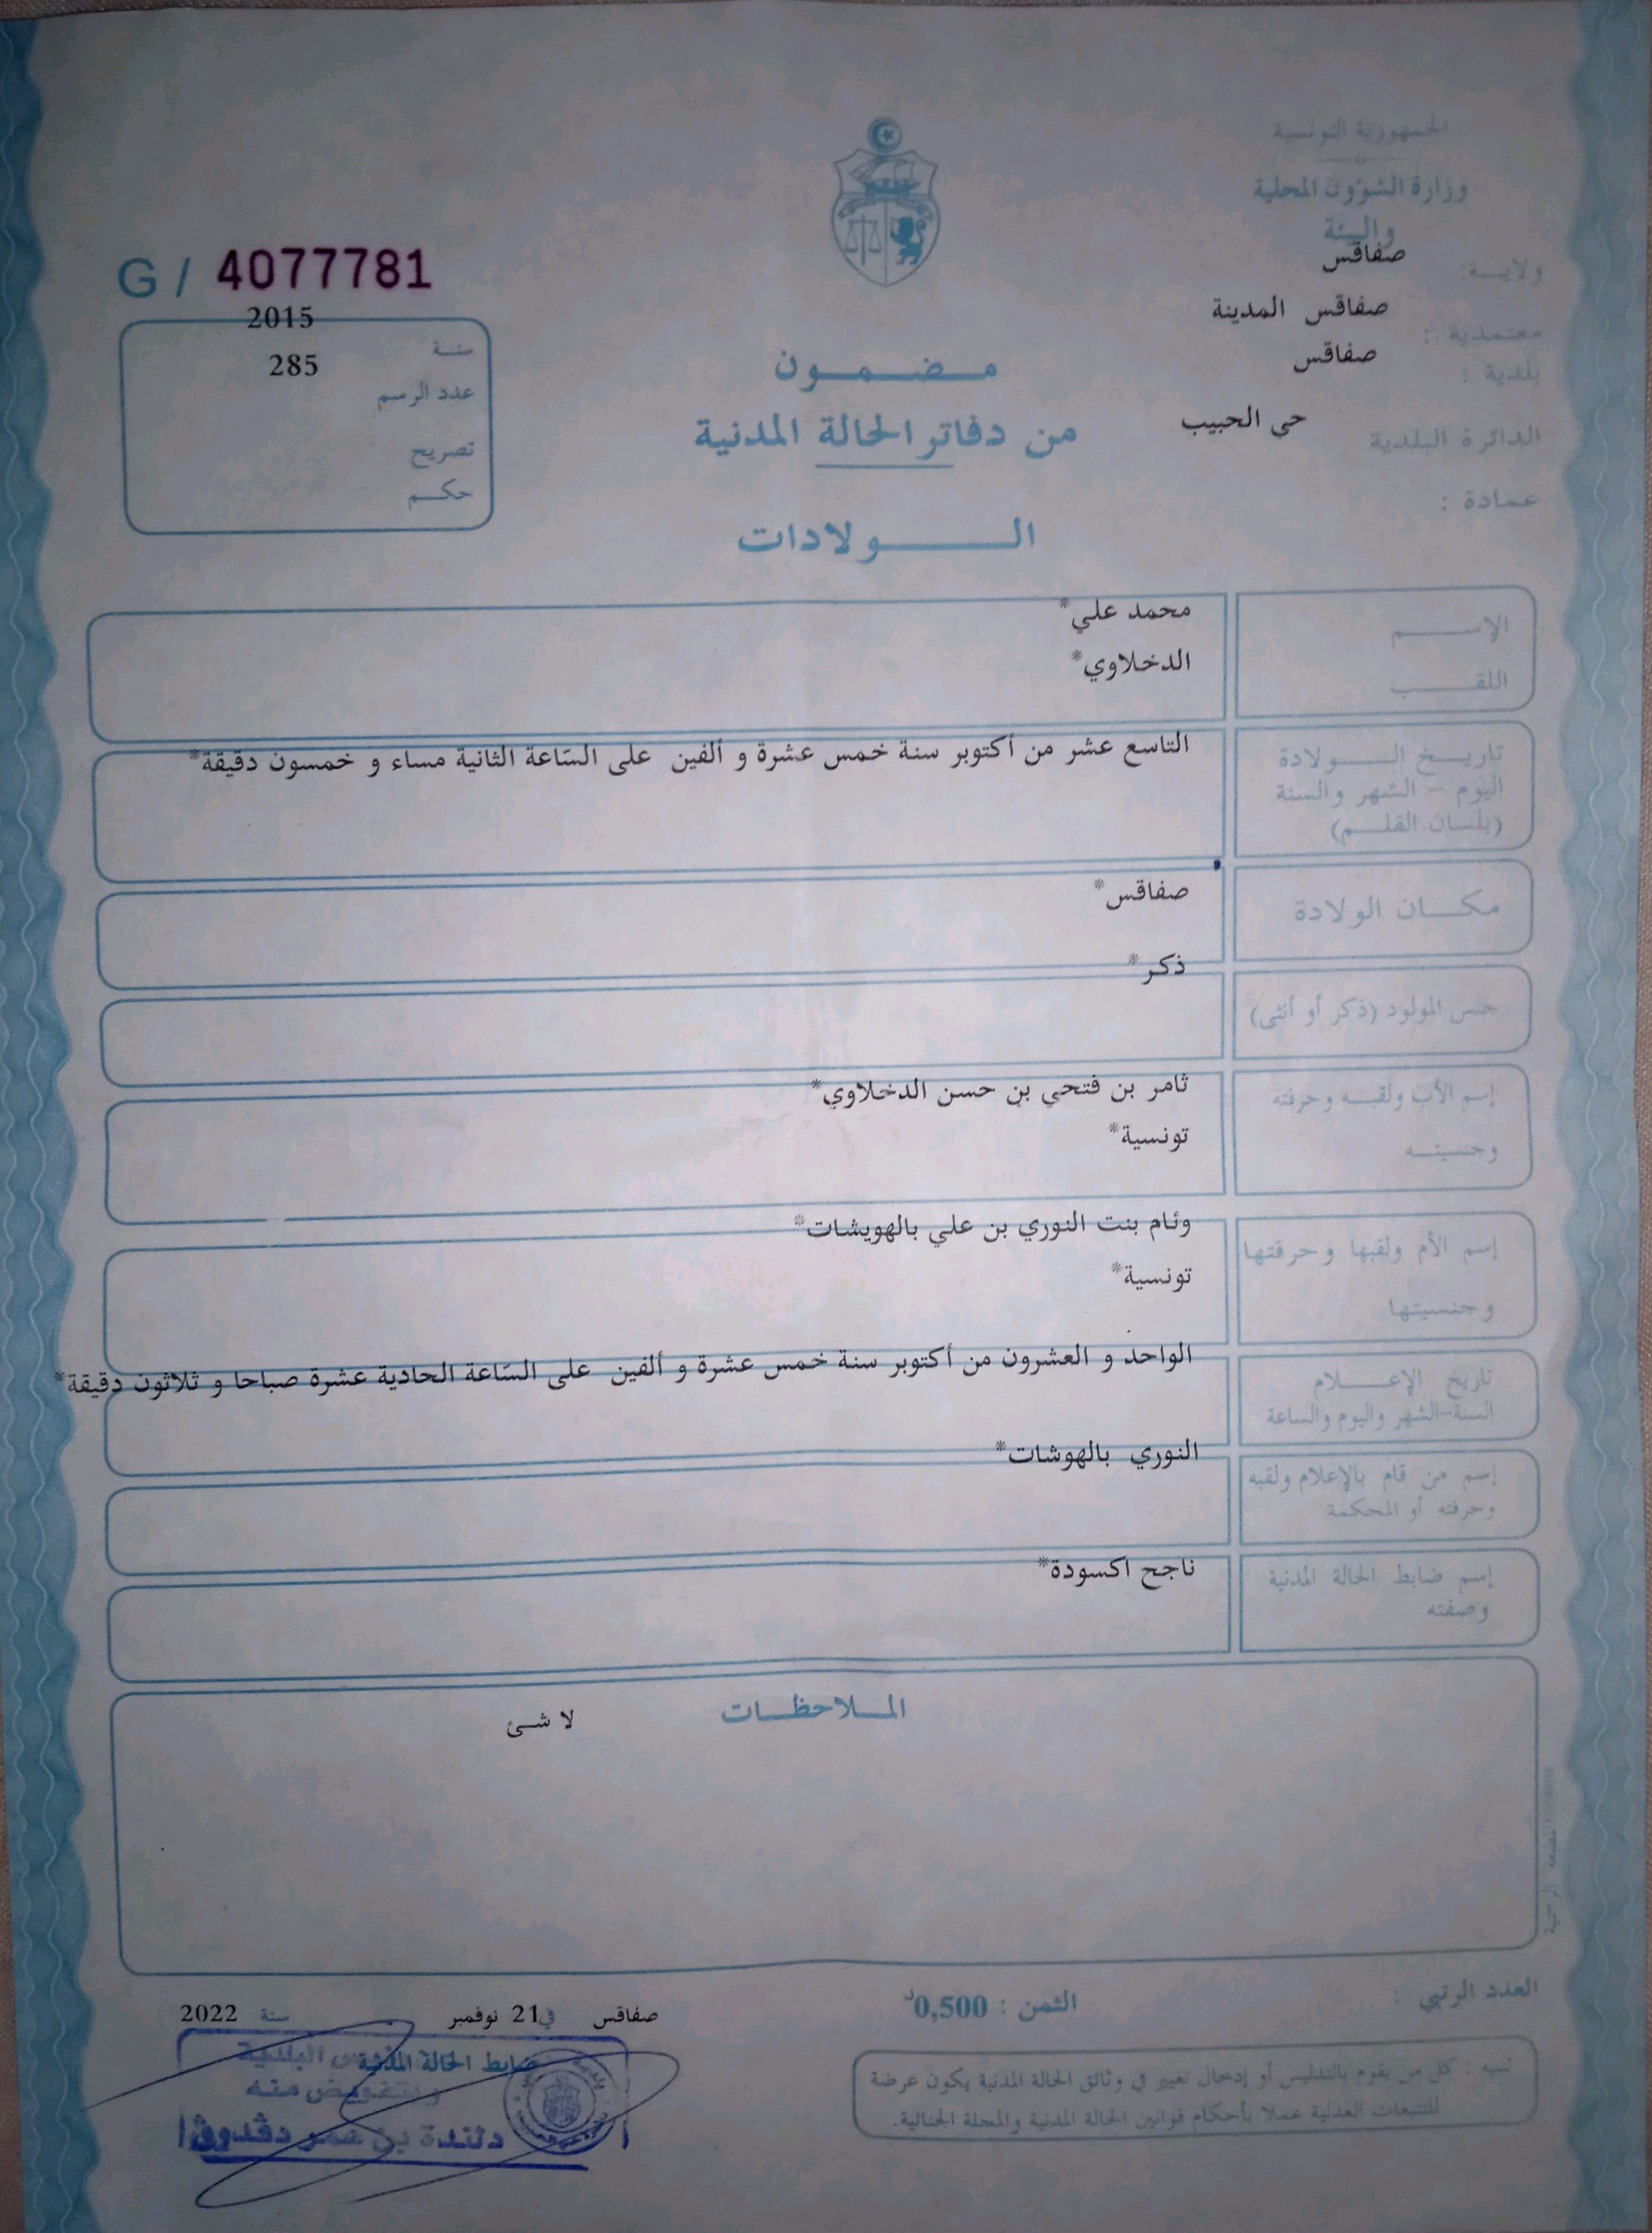 الجمهورية التونسية
وزارة الشؤون المحلية
والبيئة
ولايـــة: صفاقس
معتمدية : صفاقس المدينة
بلدية : صفاقس
الدائرة البلدية حى الحبيب
عمادة :
مـضـمـون
من دفاتر الحالة المدنية
الــولادات
G / 4077781
سنة 2015
عدد الرسم 285
تصريح
حكم
الإســـم محمد علي*
اللقـــب الدخلاوي*
تاريـخ الـــولادة التاسع عشر من أكتوبر سنة خمس عشرة و ألفين على السّاعة الثانية مساء و خمسون دقيقة*
اليوم - الشهر والسنة
(بلسان القلـــم)
مكـــان الولادة صفاقس*
جنس المولود (ذكر أو أنثى) ذكر*
إسم الأب ولقبـه وحرفته ثامر بن فتحي بن حسن الدخلاوي*
وجنسيتـــه تونسية*
إسم الأم ولقبها وحرفتها وئام بنت النوري بن علي بالهويشات*
وجنسيتها تونسية*
تاريخ الإعـــلام الواحد و العشرون من أكتوبر سنة خمس عشرة و ألفين على السّاعة الحادية عشرة صباحا و ثلاثون دقيقة*
السنة-الشهر واليوم والساعة
إسم من قام بالإعلام ولقبه النوري بالهوشات*
وحرفته أو المحكمة
إسم ضابط الحالة المدنية ناجح اكسودة*
وصفته
المـلاحظـات
لا شئ
العدد الرتبي :
الثمن : 0,500د
صفاقس في 21 نوفمبر سنة 2022
ضابط الحالة المدنية
البلدية
وبتفويض منه
دلندة بن عمر دقدوق
تنبيه : كل من يقوم بالتدليس أو إدخال تغيير في وثائق الحالة المدنية يكون عرضة
للتتبعات العدلية عملا بأحكام قوانين الحالة المدنية والمجلة الجنائية.